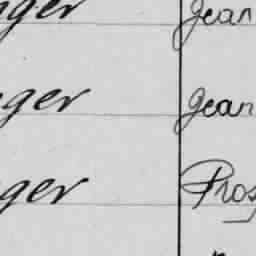 nger Jean
nger Jean
nger Pros